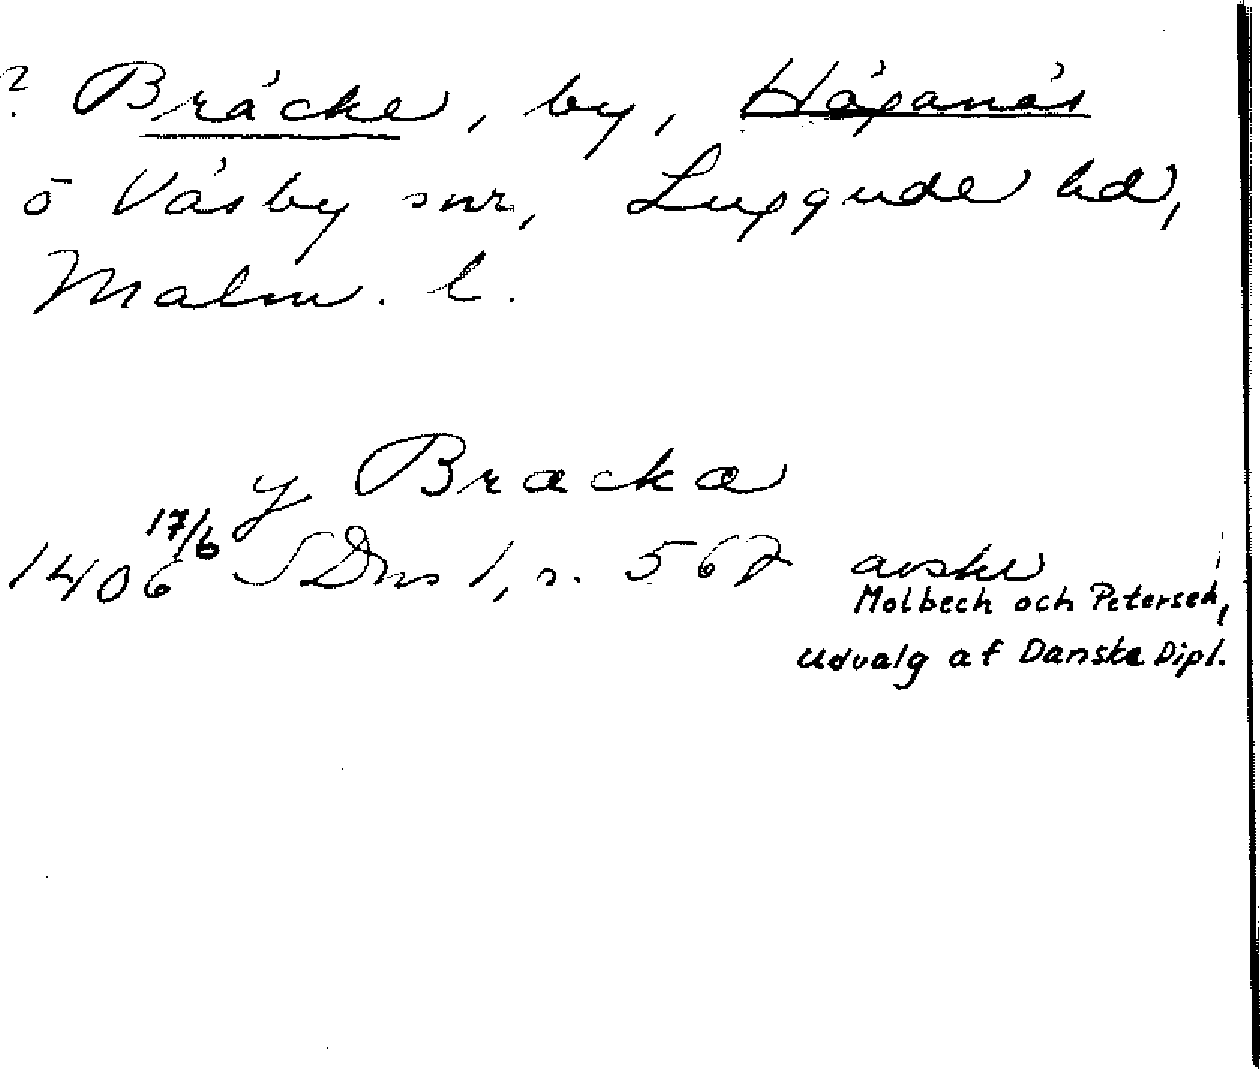 ? Bräcke, by, Höganäs
o Väsby snr, Luggude hd,
Malm. l.
y Bracka
1406 17/6 SDns 1, s. 562 avskr
Molbech och Petersen,
Udvalg af Danske Dipl.